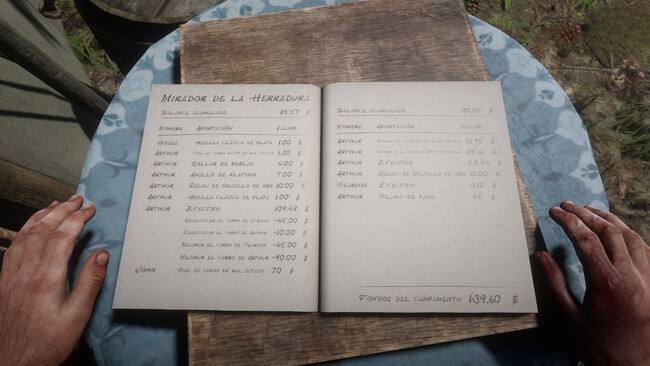 MIRADOR DE LA HERRADURA
BALANCE ACUMULADO 85.57 $
NOMBRE APORTACIÓN VALOR
MOLLY HEBILLA CLÁSICA DE PLATA 1.00 $
ARTHUR 1.30 $
ARTHUR COLLAR DE PERLAS 4.00 $
ARTHUR ANILLO DE PLATINO 7.00 $
ARTHUR RELOJ DE BOLSILLO DE ORO 10.00 $
ARTHUR HEBILLA CLÁSICA DE PLATA 1.00 $
ARTHUR EFECTIVO 109.48 $
REABASTECER EL CARRO DE -45.00
REABASTECER EL CARRO DE ARTHUR -10.00
MEJORAR EL CARRO DE PEARSON -45.00
MEJORAR EL CARRO DE ARTHUR -40.00
JOHN PIEL DE CERDO EN MAL ESTADO 70 $
BALANCE ACUMULADO $
NOMBRE APORTACIÓN VALOR
ARTHUR $
ARTHUR $
ARTHUR EFECTIVO $
ARTHUR RELOJ DE BOLSILLO DE ORO 10.00 $
PEARSON EFECTIVO 0.10 $
ARTHUR PLUMA DE PAVO 45 $
FONDOS DEL CAMPAMENTO 139.60 $